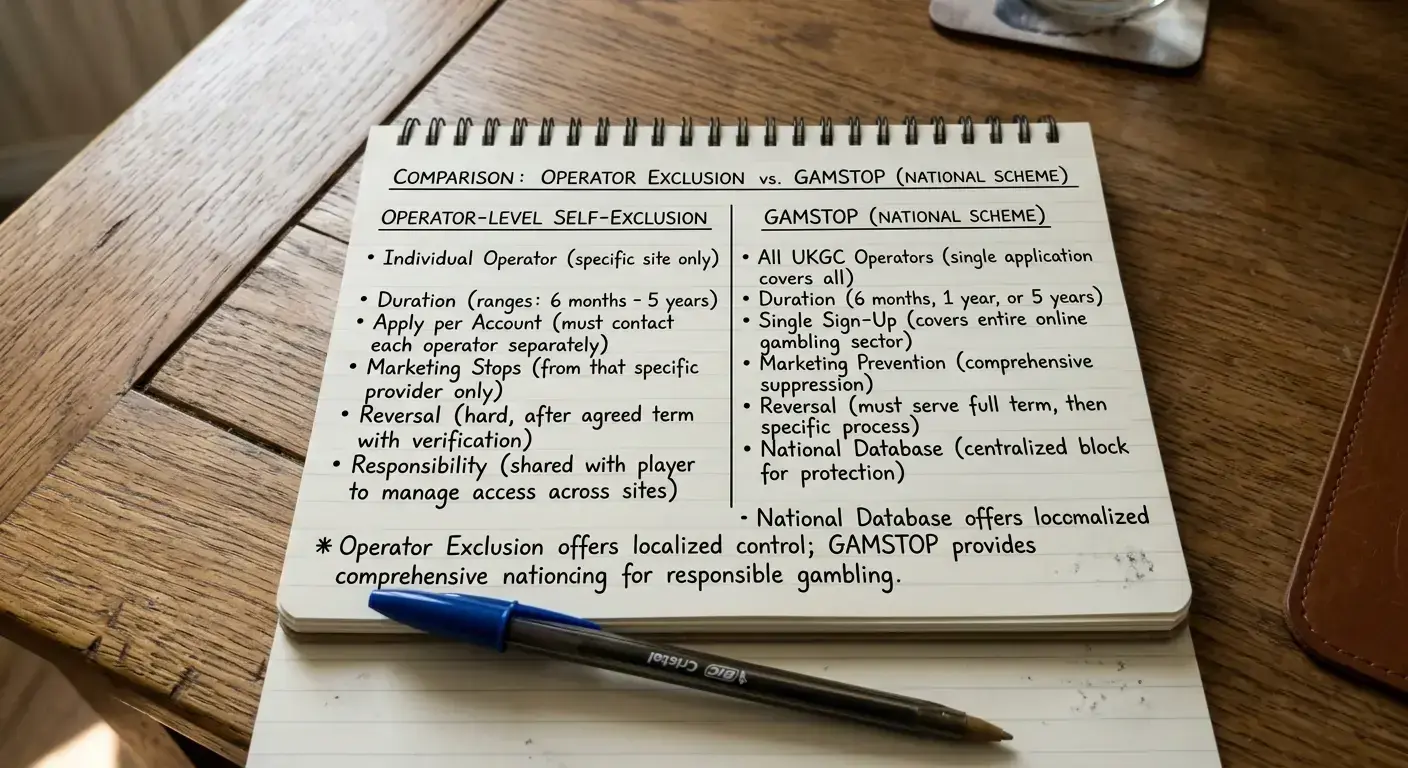 COMPARISON: OPERATOR EXCLUSION vs. GAMSTOP (NATIONAL SCHEME)
OPERATOR-LEVEL SELF-EXCLUSION
• Individual Operator (specific site only)
• Duration (ranges: 6 months – 5 years)
• Apply per Account (must contact
each operator separately)
• Marketing Stops (from that specific
provider only)
• Reversal (hard, after agreed term
with verification)
• Responsibility (shared with player
to manage access across sites)
GAMSTOP (NATIONAL SCHEME)
• All UKGC Operators (single application
covers all)
• Duration (6 months, 1 year, or 5 years)
• Single Sign-Up (covers entire online
gambling sector)
• Marketing Prevention (comprehensive
suppression)
• Reversal (must serve full term, then
specific process)
• National Database (centralized block
for protection)
- National Database offers locomalized
* Operator Exclusion offers localized control; GAMSTOP provides
comprehensive nationcing for responsible gambling.
BIC Cristal